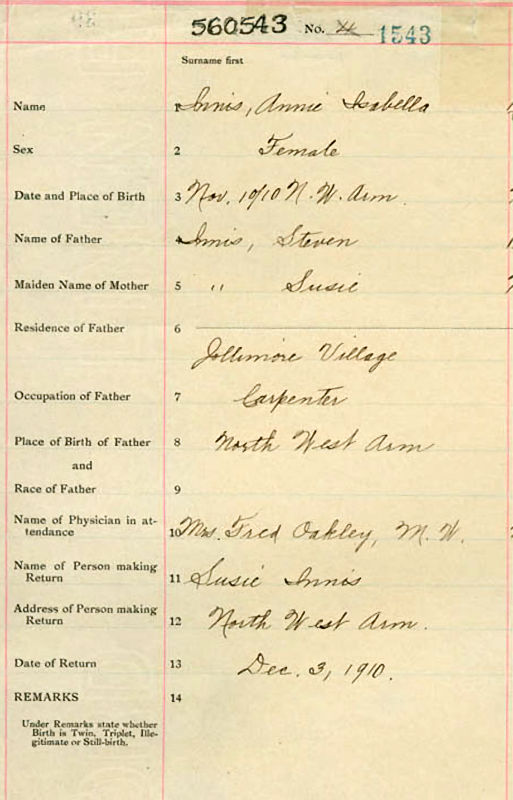 560543 No. 1543
Surname first
Name 1 Innis, Annie Isabella
Sex 2 Female
Date and Place of Birth 3 Nov. 10/10 N. W. Arm.
Name of Father 4 Innis, Steven
Maiden Name of Mother 5 " Susie
Residence of Father 6
Jollimore Village
Occupation of Father 7 Carpenter
Place of Birth of Father 8 North West Arm
and
Race of Father 9
Name of Physician in at-
tendance 10 Mrs. Fred Oakley, M. W.
Name of Person making
Return 11 Susie Innis
Address of Person making
Return 12 North West Arm.
Date of Return 13 Dec. 3, 1910.
REMARKS 14
Under Remarks state whether
Birth is Twin, Triplet, Ille-
gitimate or Still-birth.